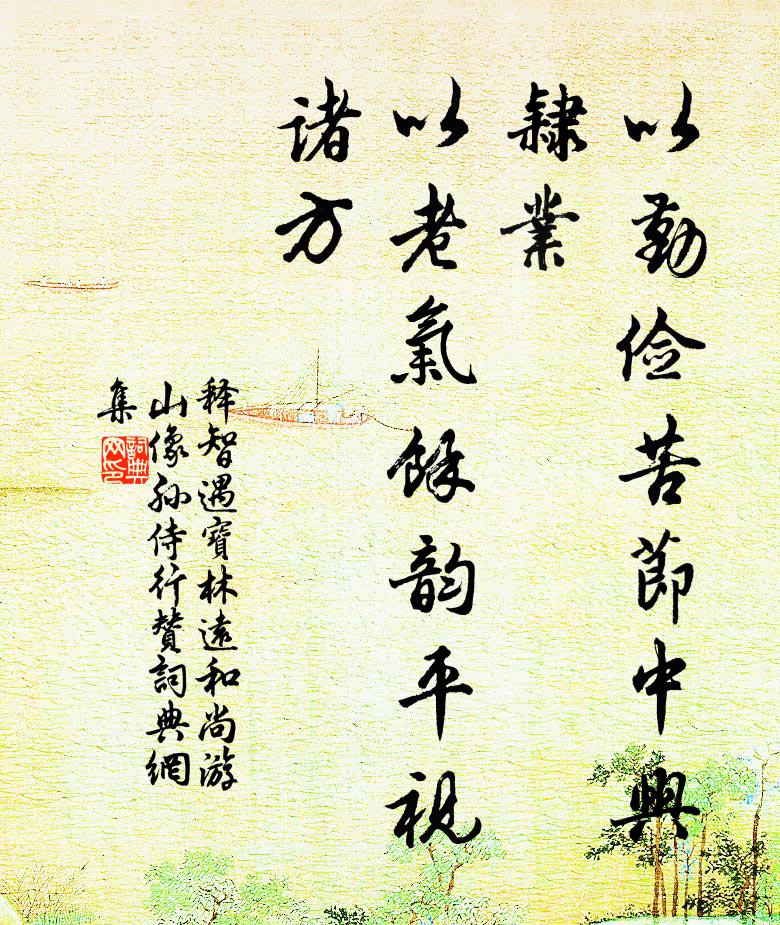 以勤儉苦節中興
隸業
以老氣餘韵平視
諸方
釋智遇寶林遠和尚游
山像孫侍行贊詞典網
集
詞典
网印